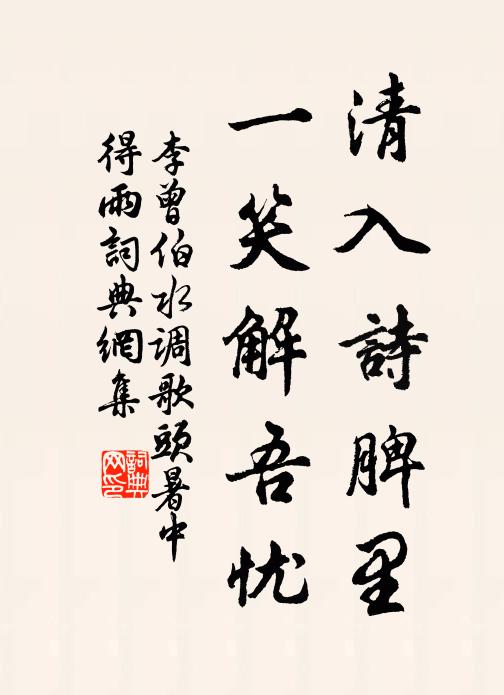 清入詩脾里
一笑解吾忧
李曾伯水调歌頭暑中
得雨詞典網集
詞典
网印